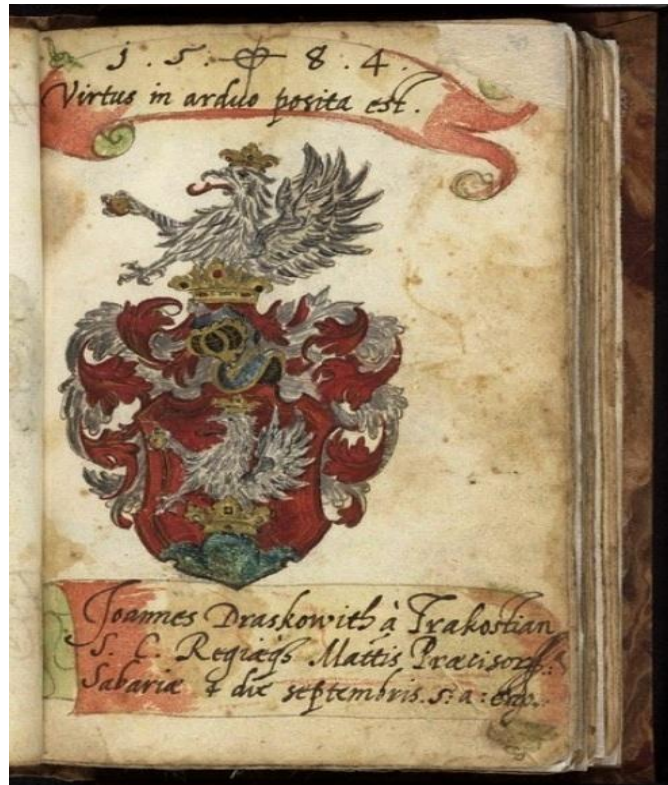 1 . 5 . 8 . 4 .
Virtus in arduo posita est .
Joannes Draskowith à Trakostian
S. C. Regiæqz Mattis
Sabariæ die septembris. s: a: